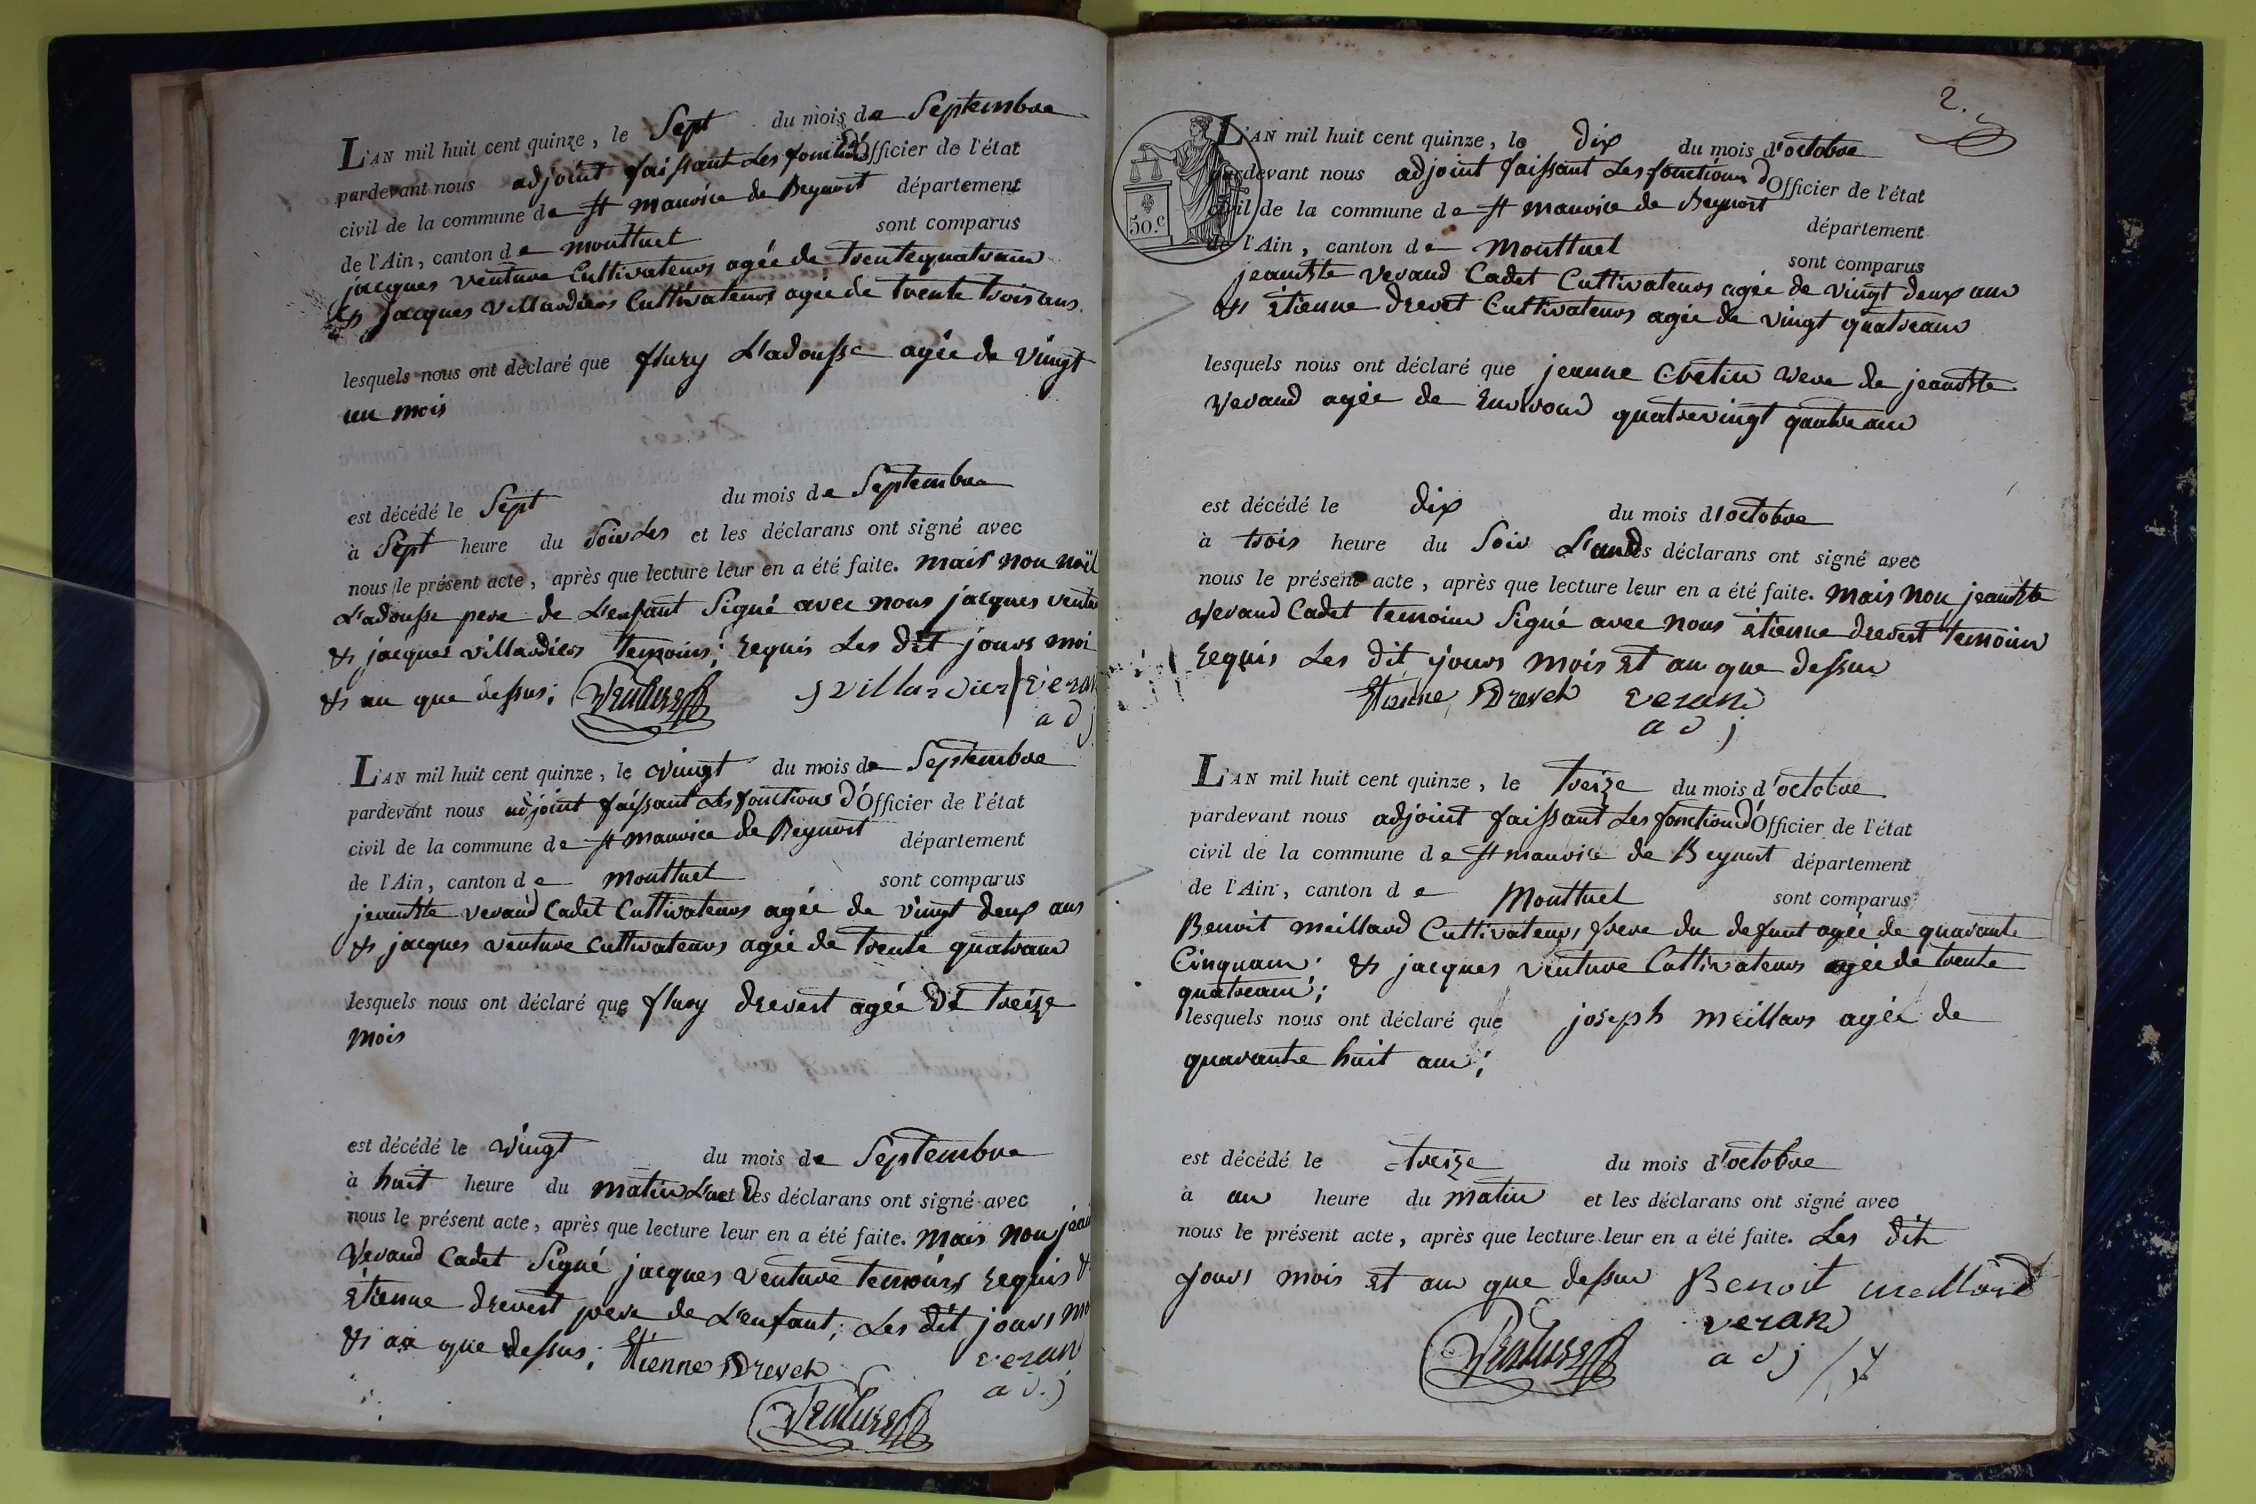 L'AN mil huit cent quinze, le Sept du mois de Septembre
pardevant nous adjoint faissant Les fonctions d'Officier de l'état
civil de la commune de St maurice de Beynost département
de l'Ain, canton de montluel sont comparus
jacques venture Cultivateurs agée de trentequatreans
& jacques villardiers Cultivateurs agée de trente trois ans.
lesquels nous ont déclaré que flury L'adousse agée de vingt
un mois
est décédé le Sept du mois de Septembre
à Sept heure du Soir Les et les déclarans ont signé avec
nous le présent acte, après que lecture leur en a été faite. mais non noël
L'adousse pere de L'enfant Signé avec nous jacques ventu
& jacques villardiers temoins; requis Les dit jours moi
& an que dessus; Venture jvillardier veran
adj
L'AN mil huit cent quinze, le vingt du mois de Septembre
pardevant nous adjoint faissant Les fonctions d'Officier de l'état
civil de la commune de St maurice de Beynost département
de l'Ain, canton de montluel sont comparus
jeanbte verand Cadet Cultivateurs agée de vingt deux ans
& jacques venture cultivateurs agée de trente quatreans
lesquels nous ont déclaré que flury drevest agée de treize
mois
est décédé le vingt du mois de Septembre
à huit heure du matin L'un des déclarans ont signé avec
nous le présent acte, après que lecture leur en a été faite. mais non jean
verand Cadet Signé jacques venture temoins requis &
etienne drevest pere de L'enfant; Les dit jours mo
& an que dessus; Etienne Drevet veran
adj
Venture
2.
L'AN mil huit cent quinze, le dix du mois d'octobre
pardevant nous adjoint faissant Les fonctions d'Officier de l'état
civil de la commune de St maurice de Beynost département
de l'Ain, canton de montluel sont comparus
50.c
jeanbte verand Cadet Cultivateurs agée de vingt deux ans
& Etienne drevet Cultivateurs agée de vingt quatreans
lesquels nous ont déclaré que jeanne Chetin veve de jeanbte
verand agée de environs quatrevingt quatre ans
est décédé le dix du mois d'octobre
à trois heure du Soir L'un des déclarans ont signé avec
nous le présent acte, après que lecture leur en a été faite. mais non jeanbte
verand Cadet temoins Signé avec nous etienne drevest temoins
requis Les dit jours mois et an que dessus
Etienne Drevet veran
adj
L'AN mil huit cent quinze, le treize du mois d'octobre
pardevant nous adjoint faissant Les fonctions d'Officier de l'état
civil de la commune de St maurice de Beynost département
de l'Ain, canton de Montluel sont comparus
Benoit meillard Cultivateurs frere du defunt agée de quarante
Cinquans; & jacques venture Cultivateurs agée de trente
quatreans;
lesquels nous ont déclaré que joseph meillars agée de
quarante huit ans;
est décédé le treize du mois d'octobre
à un heure du matin et les déclarans ont signé avec
nous le présent acte, après que lecture leur en a été faite. Les dit
jours mois et an que dessus Benoit meillard
Venture veran
adj